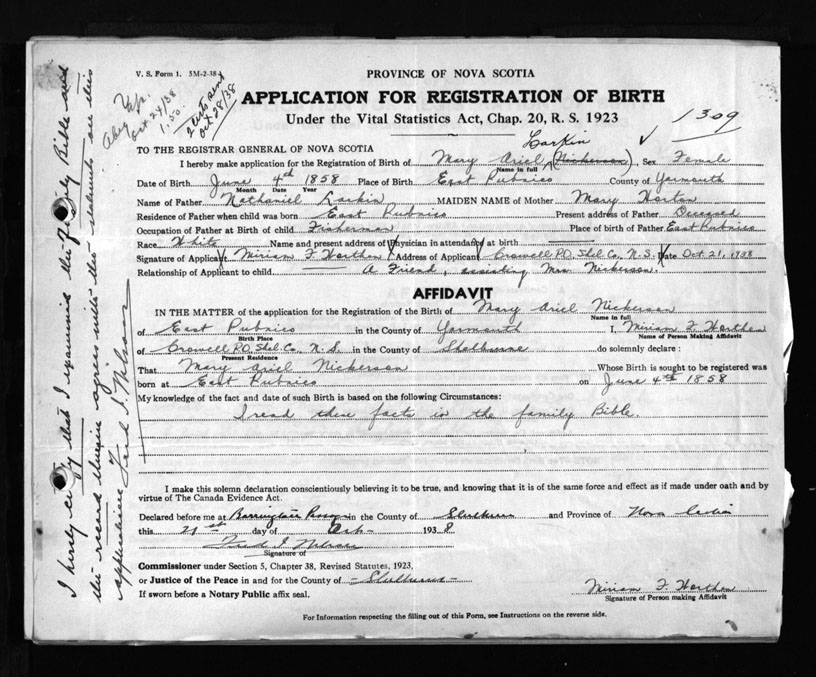 V. S. Form 1. 5M-2-38
PROVINCE OF NOVA SCOTIA
APPLICATION FOR REGISTRATION OF BIRTH
Under the Vital Statistics Act, Chap. 20, R. S. 1923
1309
Oct 24/38
1.50
Oct 28/38
TO THE REGISTRAR GENERAL OF NOVA SCOTIA
Larkin
I hereby make application for the Registration of Birth of Mary Ariel (Nickerson) Sex Female
Name in full
Date of Birth June 4th 1858 Place of Birth East Pubnico County of Yarmouth
Month Date Year
Name of Father Nathaniel Larkin MAIDEN NAME of Mother Mary Horton
Residence of Father when child was born East Pubnico Present address of Father Deceased
Occupation of Father at Birth of child Fisherman Place of birth of Father East Pubnico
Race White Name and present address of Physician in attendance at birth
Signature of Applicant Miriam F. Worthen Address of Applicant Crowell P.O. Shel. Co. N.S. Date Oct. 21, 1938
Relationship of Applicant to child A Friend, assisting Mrs. Nickerson.
AFFIDAVIT
IN THE MATTER of the application for the Registration of the Birth of Mary Ariel Nickerson
Name in full
of East Pubnico in the County of Yarmouth I, Miriam F. Worthen
Birth Place Name of Person Making Affidavit
of Crowell P.O. Shel. Co., N.S. in the County of Shelburne do solemnly declare :
Present Residence
That Mary Ariel Nickerson Whose Birth is sought to be registered was
born at East Pubnico on June 4th 1858
My knowledge of the fact and date of such Birth is based on the following Circumstances:
I read these facts in the family Bible.
I make this solemn declaration conscientiously believing it to be true, and knowing that it is of the same force and effect as if made under oath and by
virtue of The Canada Evidence Act.
Declared before me at Barrington Passage in the County of Shelburne and Province of Nova Scotia
this 21st day of Oct 1938
Fred I. Nelson
Signature of
Commissioner under Section 5, Chapter 38, Revised Statutes, 1923,
or Justice of the Peace in and for the County of Shelburne
If sworn before a Notary Public affix seal.
Miriam F. Worthen
Signature of Person making Affidavit
For Information respecting the filling out of this Form, see Instructions on the reverse side.
I hereby certify that I examined the family Bible and
the record therein agrees with the statements on this
application Fred I. Nelson